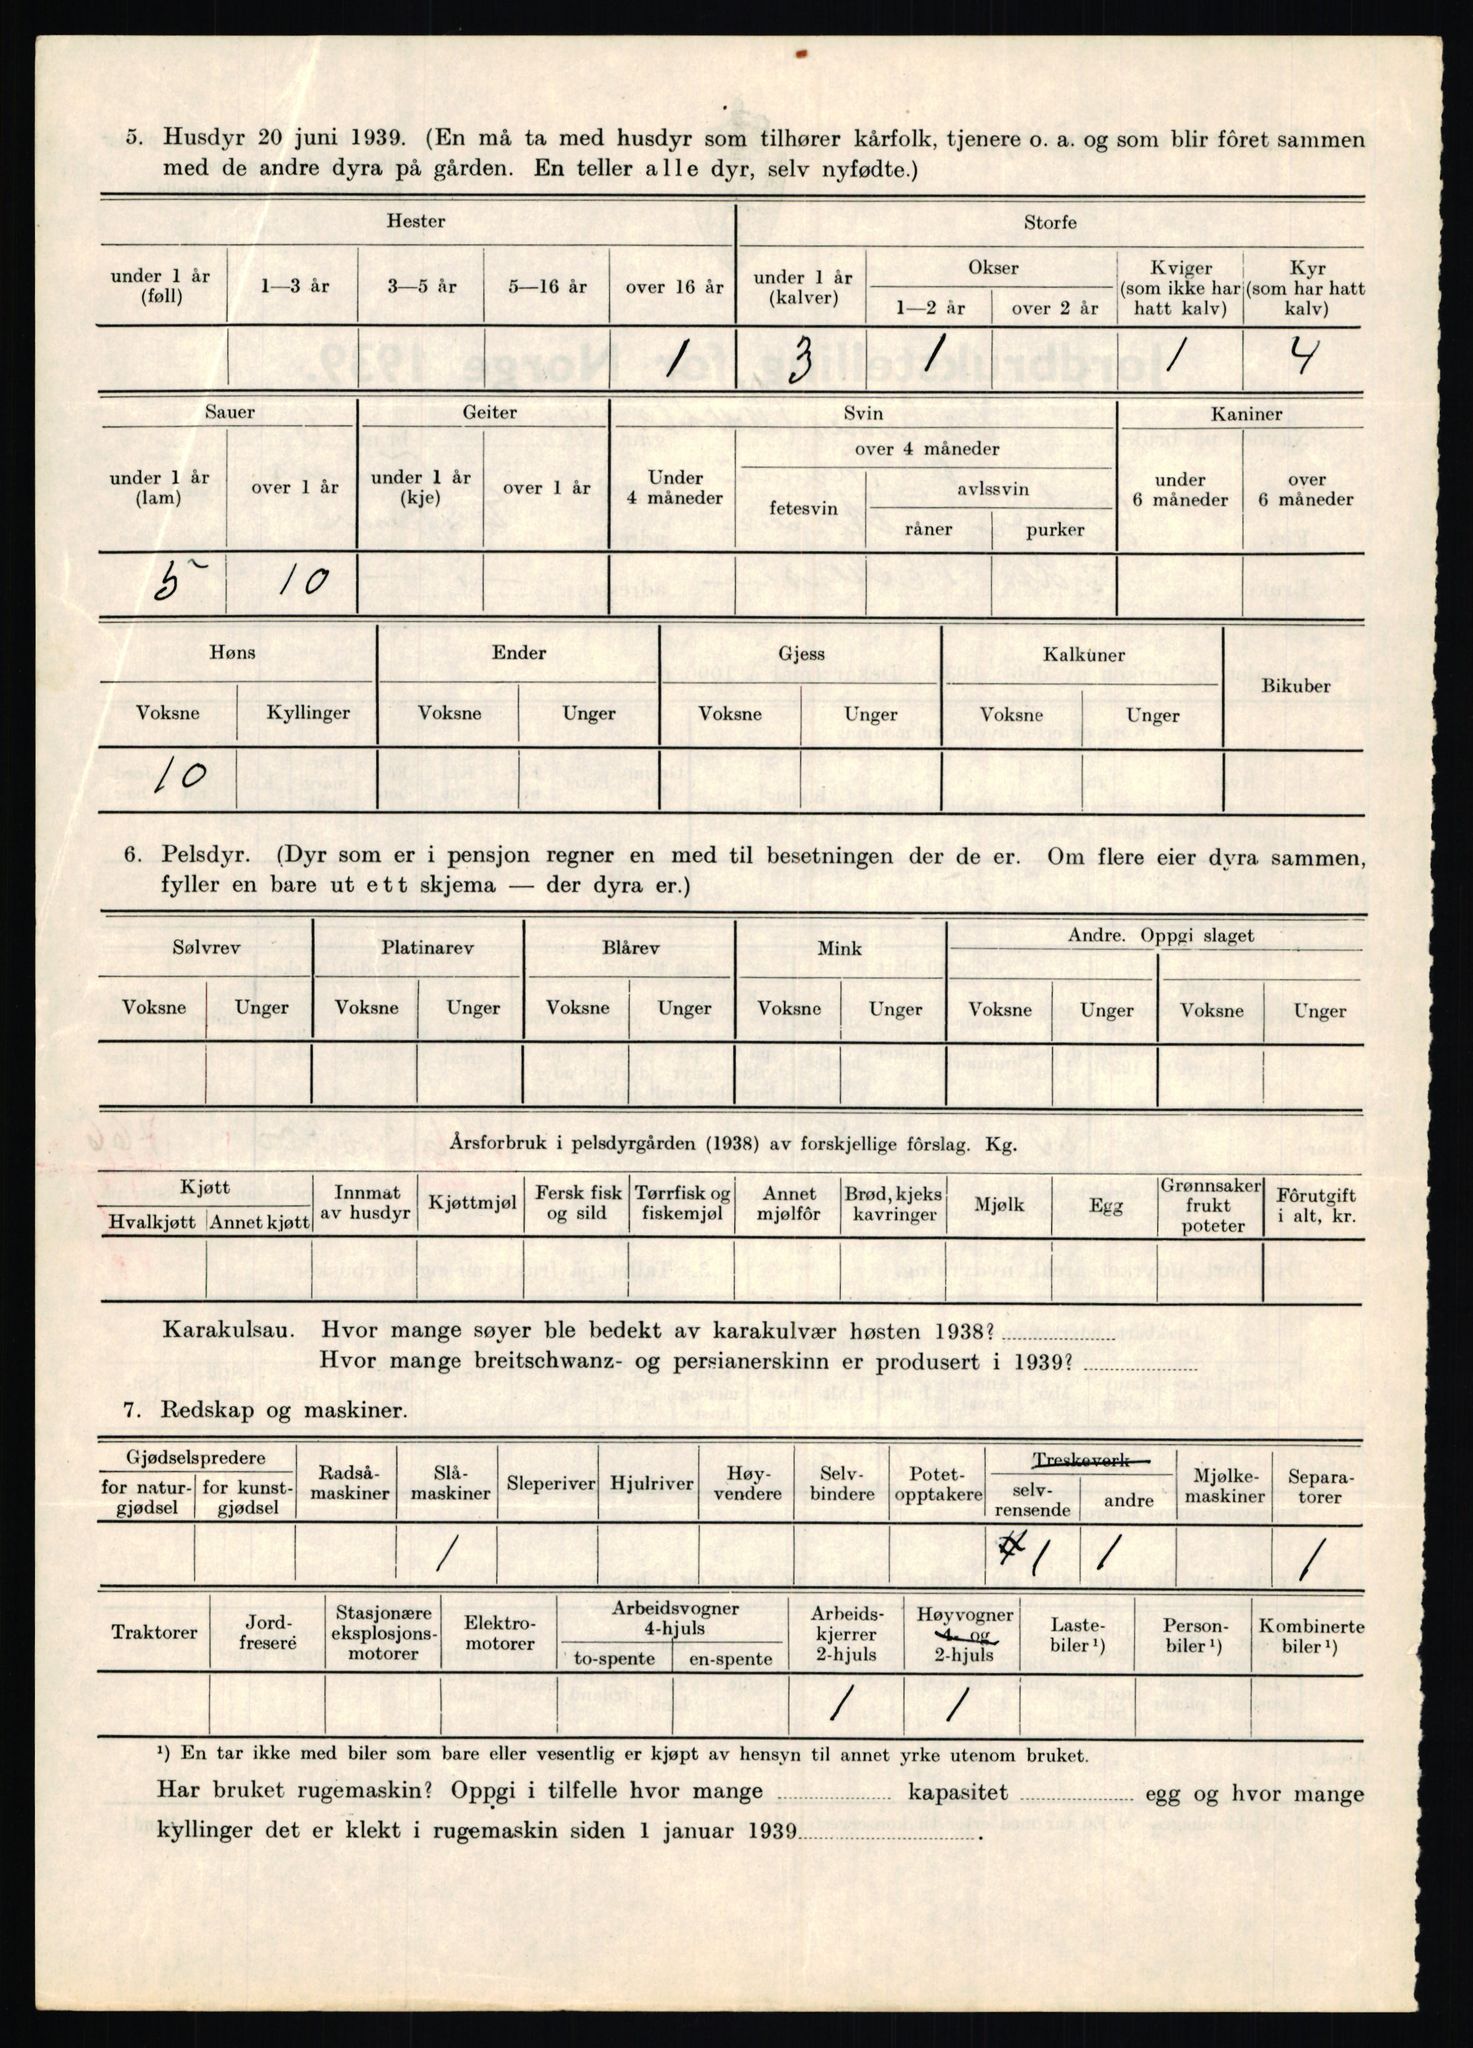 5. Husdyr 20 juni 1939. (En må ta med husdyr som tilhører kårfolk, tjenere o. a. og som blir fôret sammen
med de andre dyra på gården. En teller alle dyr, selv nyfødte.)
Hester Storfe
under 1 år (føll) 1—3 år 3—5 år 5—16 år over 16 år under 1 år (kalver) Okser Kviger (som ikke har hatt kalv) Kyr (som har hatt kalv)
1—2 år over 2 år
1 3 1 1 4
Sauer Geiter Svin Kaniner
under 1 år (lam) over 1 år under 1 år (kje) over 1 år Under 4 måneder over 4 måneder under 6 måneder over 6 måneder
fetesvin avlssvin
råner purker
5 10
Høns Ender Gjess Kalkuner Bikuber
Voksne Kyllinger Voksne Unger Voksne Unger Voksne Unger
10
6. Pelsdyr. (Dyr som er i pensjon regner en med til besetningen der de er. Om flere eier dyra sammen,
fyller en bare ut ett skjema — der dyra er.)
Sølvrev Platinarev Blårev Mink Andre. Oppgi slaget
Voksne Unger Voksne Unger Voksne Unger Voksne Unger Voksne Unger Voksne Unger
Årsforbruk i pelsdyrgården (1938) av forskjellige fôrslag. Kg.
Kjøtt Innmat av husdyr Kjøttmjøl Fersk fisk og sild Tørrfisk og fiskemjøl Annet mjølfôr Brød, kjeks kavringer Mjølk Egg Grønnsaker frukt poteter Fôrutgift i alt, kr.
Hvalkjøtt Annet kjøtt
Karakulsau. Hvor mange søyer ble bedekt av karakulvær høsten 1938?
Hvor mange breitschwanz- og persianerskinn er produsert i 1939?
7. Redskap og maskiner.
Gjødselspredere Radså-maskiner Slå-maskiner Sleperiver Hjulriver Høy-vendere Selv-bindere Potet-opptakere Treskeverk Mjølke-maskiner Separa-torer
for natur-gjødsel for kunst-gjødsel selv-rensende andre
1 1 1 1
Traktorer Jord-fresere Stasjonære eksplosjons-motorer Elektro-motorer Arbeidsvogner 4-hjuls Arbeids-kjerrer 2-hjuls Høyvogner 4- og 2-hjuls Laste-biler ¹) Person-biler ¹) Kombinerte biler ¹)
to-spente en-spente
1 1
¹) En tar ikke med biler som bare eller vesentlig er kjøpt av hensyn til annet yrke utenom bruket.
Har bruket rugemaskin? Oppgi i tilfelle hvor mange kapasitet egg og hvor mange
kyllinger det er klekt i rugemaskin siden 1 januar 1939 .